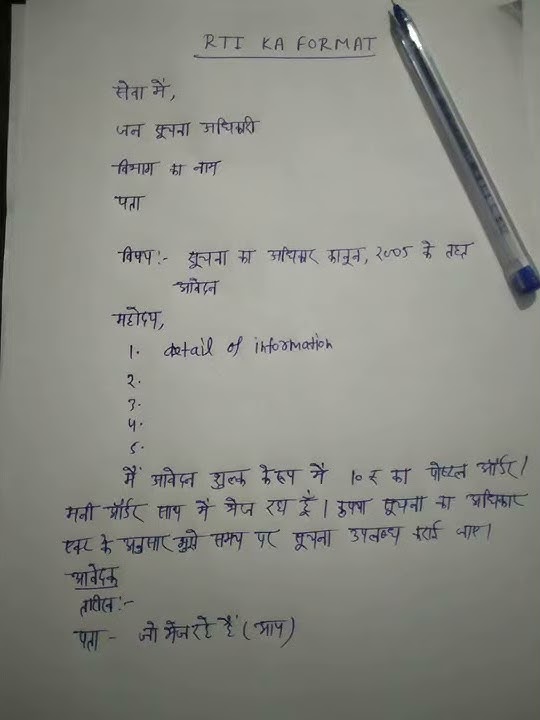 RTI KA FORMAT
सेवा में,
जन सूचना अधिकारी
विभाग का नाम
पता
विषय:- सूचना का अधिकार कानून, २००५ के तहत
आवेदन
महोदय,
1. detail of information
2.
3.
4.
5.
मैं आवेदन शुल्क के रूप में 10 ₹ का पोस्टल ऑर्डर/
मनी ऑर्डर साथ में भेज रहा हूँ। कृपया सूचना का अधिकार
एक्ट के अनुसार मुझे समय पर सूचना उपलब्ध कराई जाए।
आवेदक
तारीख:-
पता - जो भेज रहे हैं (आप)